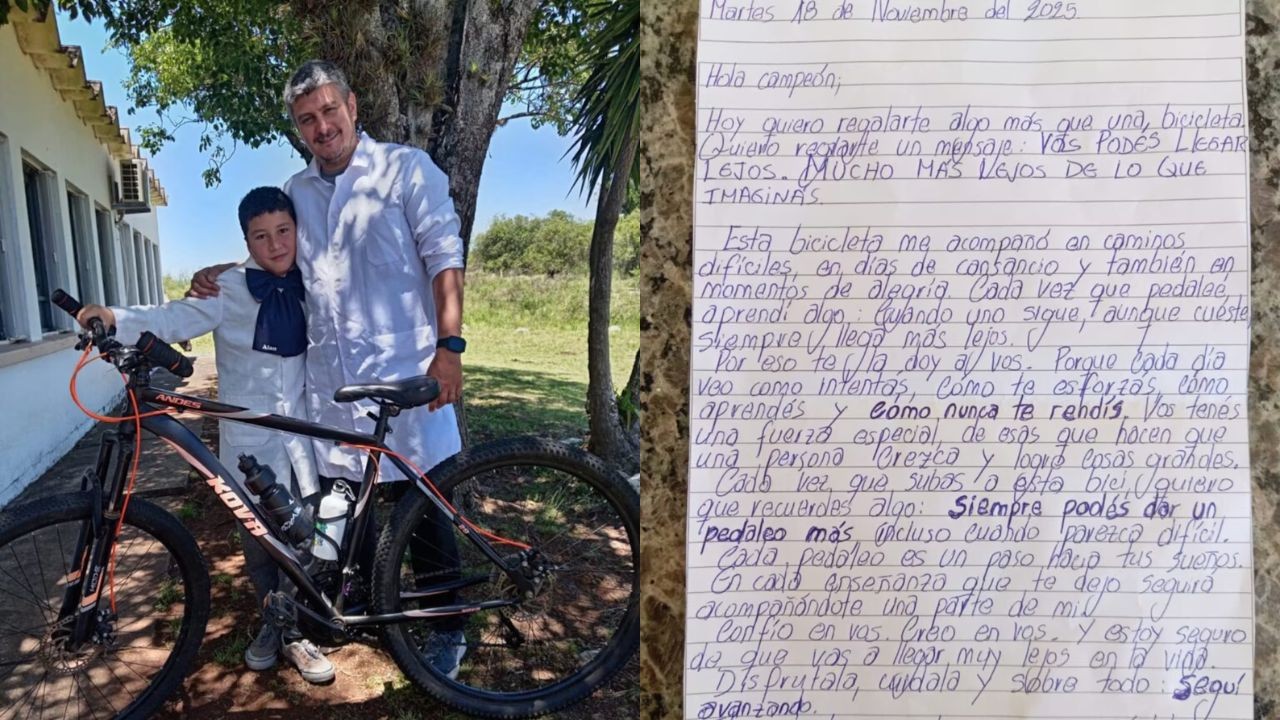 Alan
ANDES
KOVA
Martes 18 de Noviembre del 2025.
Hola campeón;
Hoy quiero regalarte algo más que una bicicleta.
Quiero regalarte un mensaje: VOS PODÉS LLEGAR
LEJOS. MUCHO MÁS LEJOS DE LO QUE
IMAGINÁS.
Esta bicicleta me acompañó en caminos
difíciles, en días de cansancio y también en
momentos de alegría. Cada vez que pedaleé,
aprendí algo: Cuando uno sigue, aunque cueste,
siempre llega más lejos.
Por eso te la doy a vos. Porque Cada día
veo como intentás, cómo te esforzás, cómo
aprendés y cómo nunca te rendís. Vos tenés
una fuerza especial, de esas que hacen que
una persona crezca y logre cosas grandes.
Cada vez que subas a esta bici, quiero
que recuerdes algo: Siempre podés dar un
pedaleo más incluso cuando parezca difícil.
Cada pedaleo es un paso hacia tus sueños.
En cada enseñanza que te dejo seguirá
acompañándote una parte de mí.
Confío en vos. Creo en vos. Y estoy seguro
de que vas a llegar muy lejos en la vida.
Disfrutala, cuidala y sobre todo: Seguí
avanzando.